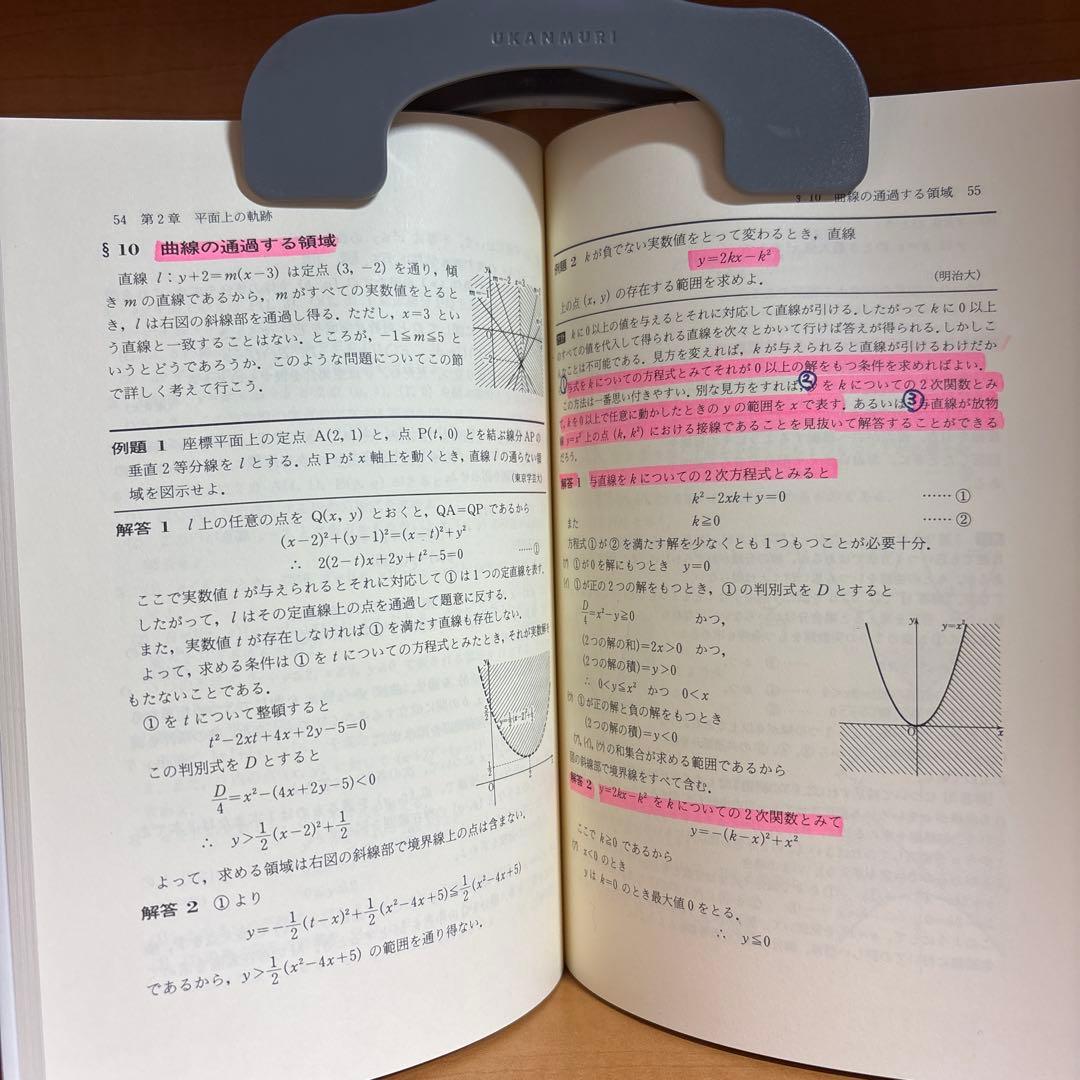 UKANMURI
54 第2章 平面上の軌跡
§10 曲線の通過する領域
直線 l : y+2=m(x−3) は定点 (3, −2) を通り，傾
き m の直線であるから，m がすべての実数値をとると
き，l は右図の斜線部を通過し得る．ただし，x=3 とい
う直線と一致することはない．ところが，−1≦m≦5 と
いうとどうであろうか．このような問題についてこの節
で詳しく考えて行こう．
例題 1 座標平面上の定点 A(2, 1) と，点 P(t, 0) とを結ぶ線分 AP の
垂直2等分線を l とする．点 P が x 軸上を動くとき，直線 l の通らない領
域を図示せよ．
(東京学芸大)
解答 1 l 上の任意の点を Q(x, y) とおくと，QA=QP であるから
(x−2)²+(y−1)²=(x−t)²+y²
∴ 2(2−t)x+2y+t²−5=0 ……①
ここで実数値 t が与えられるとそれに対応して①は1つの定直線を表す．
したがって，l はその定直線上の点を通過して題意に反する．
また，実数値 t が存在しなければ①を満たす直線も存在しない．
よって，求める条件は①を t についての方程式とみたとき，それが実数解を
もたないことである．
①を t について整頓すると
t²−2xt+4x+2y−5=0
この判別式を D とすると
D/4=x²−(4x+2y−5)<0
∴ y>1/2(x−2)²+1/2
よって，求める領域は右図の斜線部で境界線上の点は含まない．
解答 2 ①より
y=−1/2(t−x)²+1/2(x²−4x+5)≦1/2(x²−4x+5)
であるから，y>1/2(x²−4x+5) の範囲を通り得ない．
§10 曲線の通過する領域 55
例題 2 k が負でない実数値をとって変わるとき，直線
y=2kx−k²
上の点 (x, y) の存在する範囲を求めよ．
(明治大)
k に0以上の値を与えるとそれに対応して直線が引ける．したがって k に0以上
のすべての値を代入して得られる直線を次々とかいて行けば答えが得られる．しかしこ
んなことは不可能である．見方を変えれば，k が与えられると直線が引けるわけだか
① 与式を k についての方程式とみてそれが0以上の解をもつ条件を求めればよい．
この方法は一番思い付きやすい．別な見方をすれば，② を k についての2次関数とみ
て，k を0以上で任意に動かしたときの y の範囲を x で表す．あるいは ③ 与直線が放物
線 y=x² 上の点 (k, k²) における接線であることを見抜いて解答することができる
だろう．
解答 1 与直線を k についての2次方程式とみると
k²−2xk+y=0 ……①
また k≧0 ……②
方程式①が②を満たす解を少なくとも1つもつことが必要十分．
(ア) ①が0を解にもつとき y=0
(イ) ①が正の2つの解をもつとき，①の判別式を D とすると
D/4=x²−y≧0 かつ，
(2つの解の和)=2x>0 かつ，
(2つの解の積)=y>0
∴ 0<y≦x² かつ 0<x
(ウ) ①が正の解と負の解をもつとき
(2つの解の積)=y<0
(ア), (イ), (ウ)の和集合が求める範囲であるから
図の斜線部で境界線をすべて含む．
y
y=x²
O
x
解答 2 y=2kx−k² を k についての2次関数とみて
y=−(k−x)²+x²
ここで k≧0 であるから
(ア) x<0 のとき
y は k=0 のとき最大値0をとる．
∴ y≦0